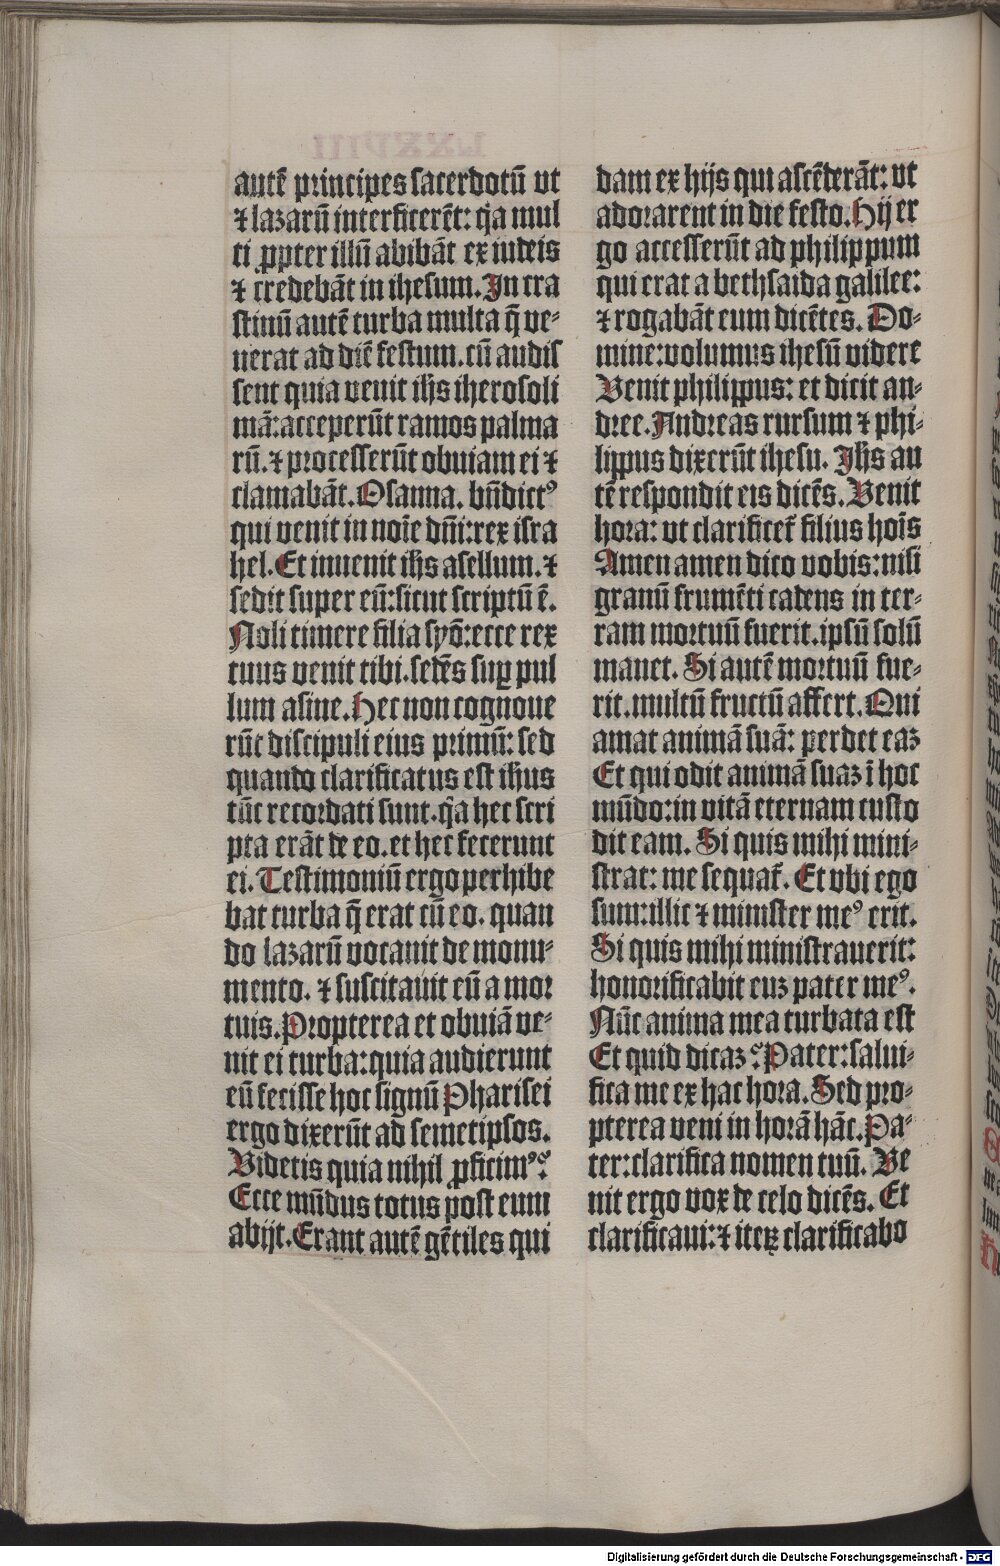 autē principes sacerdotū vt
⁊ lazarū interficerēt: qͥa mul
ti ꝓpter illū abibāt ex iudeis
⁊ credebāt in ihesum. In cra
stinū autē turba multa q̄ ve⸗
nerat ad diē festum. cū audis
sent quia venit ihs iherosoli
mā: acceperūt ramos palma
rū. ⁊ processerūt obuiam ei ⁊
clamabāt. Osanna. bn̄dictꝰ
qui venit in noīe dn̄i: rex isra
hel. Et inuenit ihs asellum. ⁊
sedit super eū: sicut scriptū ē.
Noli timere filia syō: ecce rex
tuus venit tibi. sedēs suꝑ pul
lum asine. Hec non cognoue
rūt discipuli eius primū: sed
quando clarificatus est ihus
tūc recordati sunt. qͥa hec scri
pta erāt de eo. et hec fecerunt
ei. Testimoniū ergo perhibe
bat turba q̄ erat cū eo. quan
do lazarū vocauit de monu⸗
mento. ⁊ suscitauit eū a mor
tuis. Propterea et obuiā ve⸗
nit ei turba: quia audierunt
eū fecisse hoc signū Pharisei
ergo dixerūt ad semetipsos.
Videtis quia nihil ꝓficimꝰ?
Ecce mūdus totus post eum
abijt. Erant autē gētiles qui
dam ex hijs qui ascēderāt: vt
adorarent in die festo. Hij er
go accesserūt ad philippum
qui erat a bethsaida galilee:
⁊ rogabāt eum dicētes. Do⸗
mine: volumus ihesū videre
Venit philippus: et dicit an⸗
dree. Andreas rursum ⁊ phi⸗
lippus dixerūt ihesu. Ihs au
tē respondit eis dicēs. Venit
hora: vt clarificet᷑ filius hoīs
Amen amen dico vobis: nisi
granū frumēti cadens in ter⸗
ram mortuū fuerit. ipsū solū
manet. Si autē mortuū fue⸗
rit. multū fructū affert. Qui
amat animā suā: perdet eaꝫ
Et qui odit animā suaꝫ ī hoc
mūdo: in vitā eternam custo
dit eam. Si quis mihi mini⸗
strat: me sequat᷑. Et vbi ego
sum: illic ⁊ minister meꝰ erit.
Si quis mihi ministrauerit:
honorificabit euꝫ pater meꝰ.
Nūc anima mea turbata est
Et quid dicaꝫ? Pater: salui⸗
fica me ex hac hora. Sed pro⸗
pterea veni in horā hāc. Pa⸗
ter: clarifica nomen tuū. Ve
nit ergo vox de celo dicēs. Et
clarificaui: ⁊ iteꝝ clarificabo
Digitalisierung gefördert durch die Deutsche Forschungsgemeinschaft - DFG